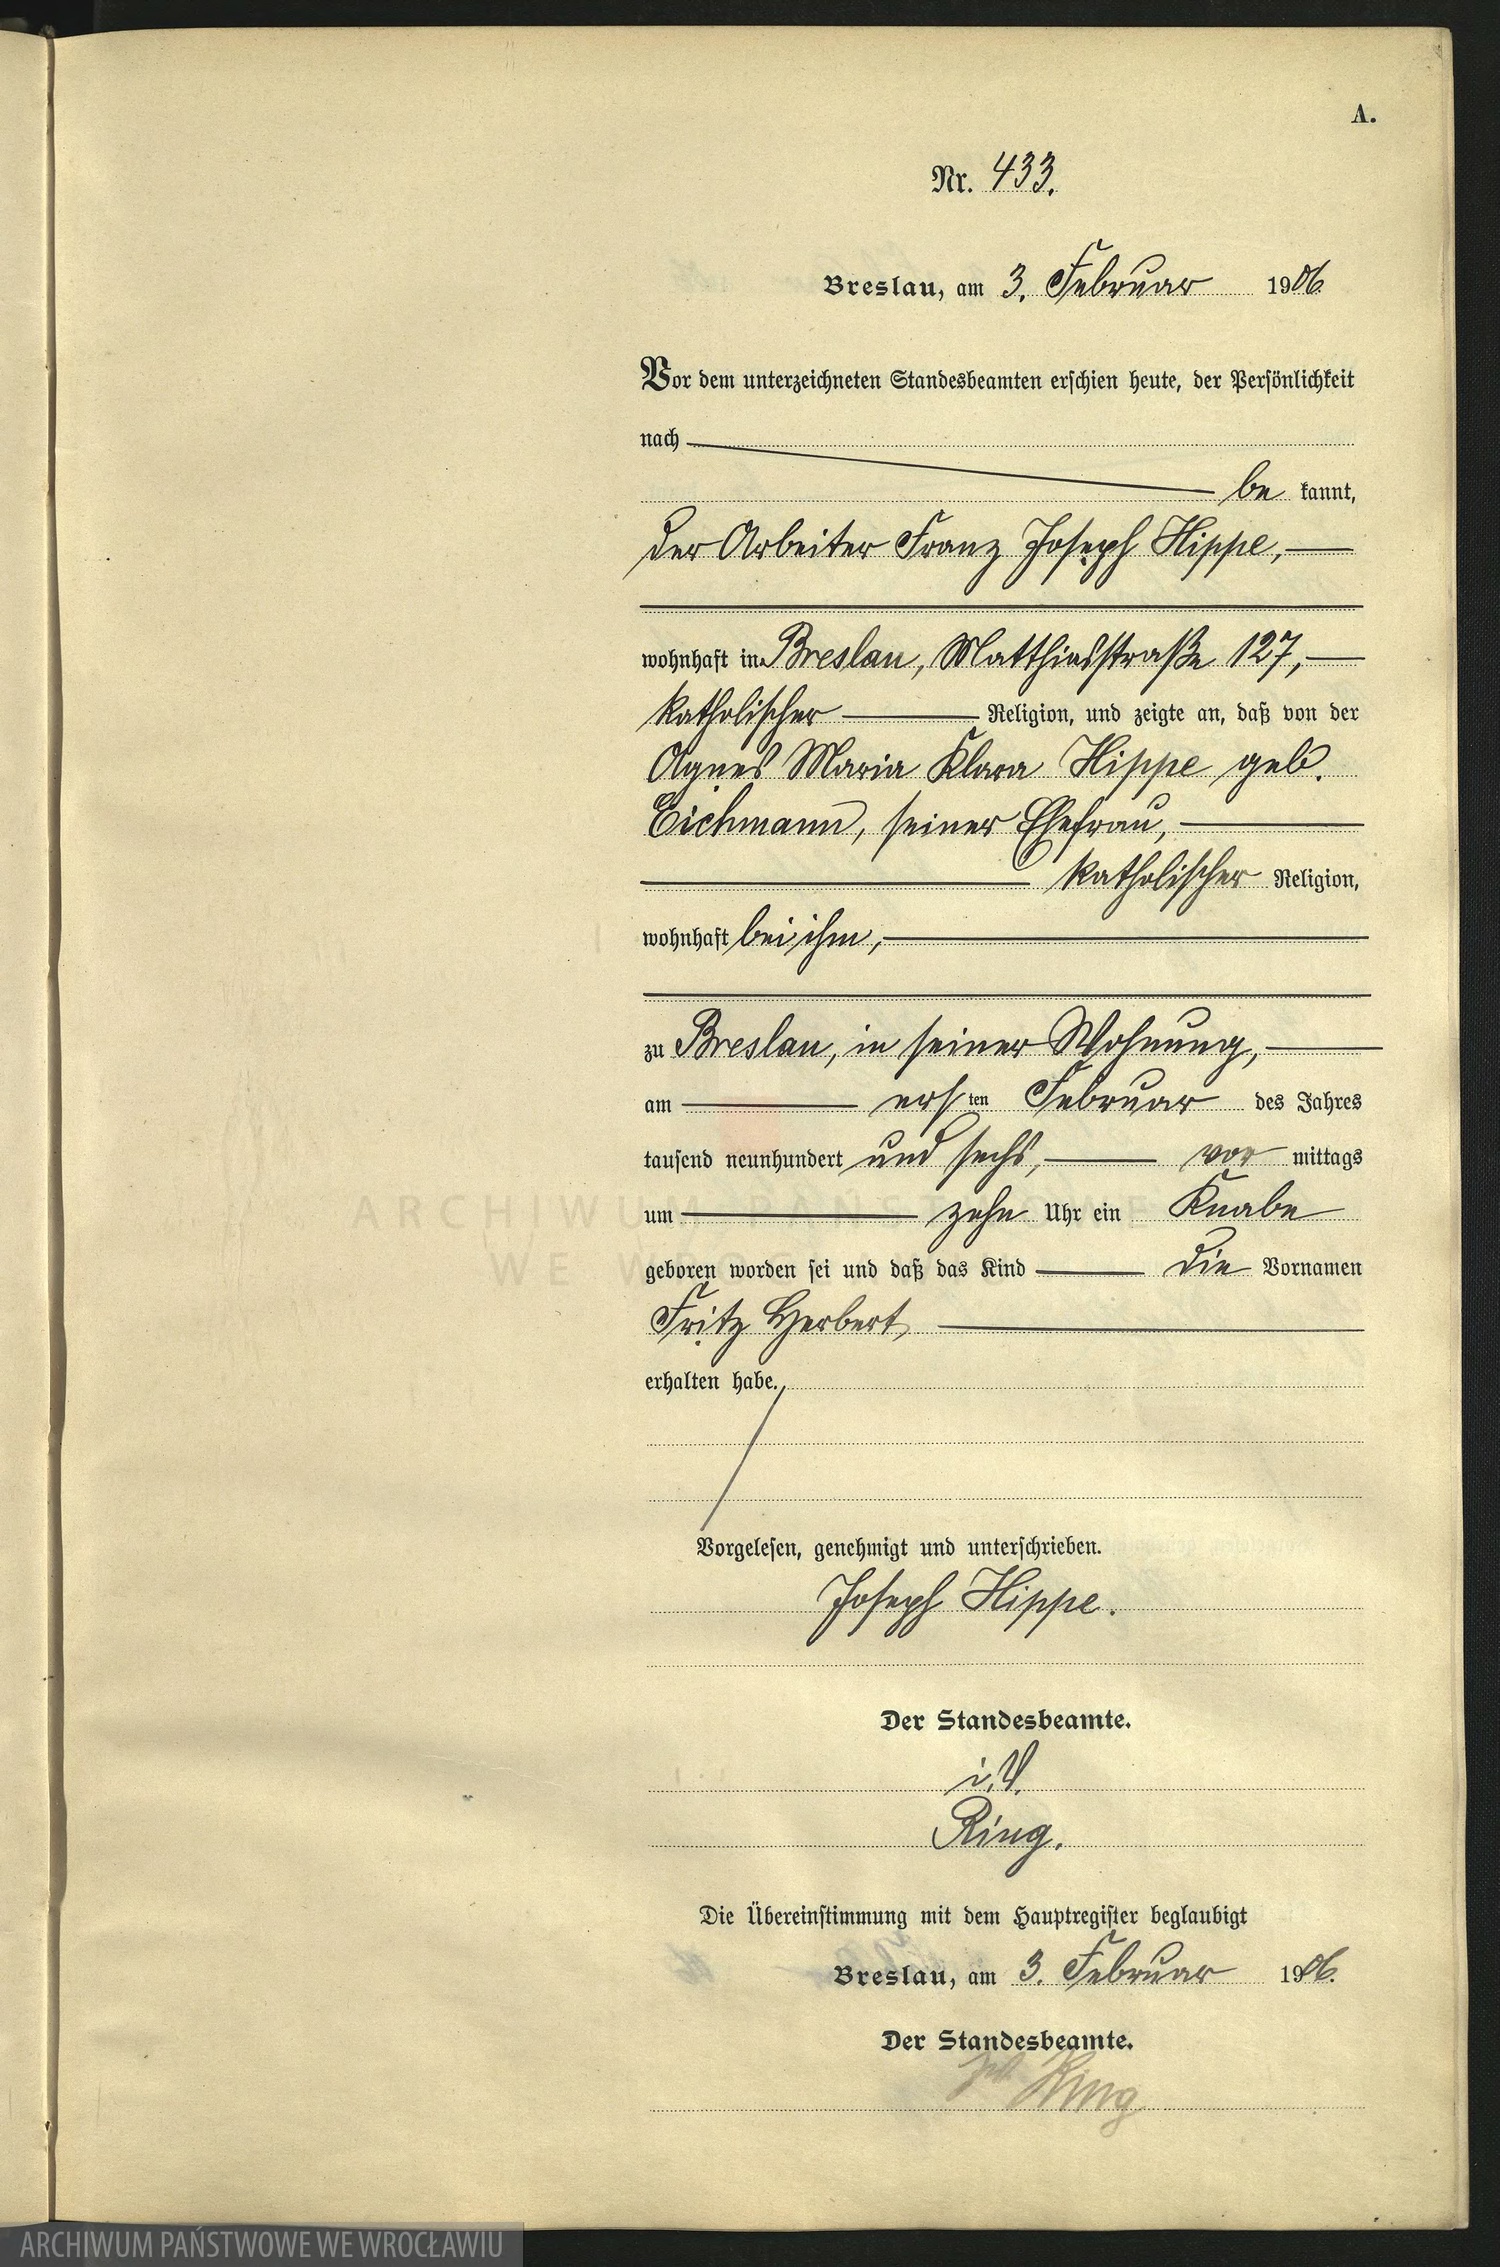 A.
Nr. 433.
Breslau, am 3. Februar 1906.
Vor dem unterzeichneten Standesbeamten erschien heute, der Persönlichkeit
nach
be kannt,
der Arbeiter Franz Joseph Hippe,
wohnhaft in Breslau, Matthiasstraße 127,
katholischer Religion, und zeigte an, daß von der
Agnes Maria Klara Hippe geb.
Eichmann, seiner Ehefrau,
katholischer Religion,
wohnhaft bei ihm,
zu Breslau, in seiner Wohnung,
am ersten Februar des Jahres
tausend neunhundert und sechs, vor mittags
um zehn Uhr ein Knabe
geboren worden sei und daß das Kind die Vornamen
Fritz Herbert
erhalten habe.
Vorgelesen, genehmigt und unterschrieben.
Joseph Hippe.
Der Standesbeamte.
i. V.
Ring.
Die Übereinstimmung mit dem Hauptregister beglaubigt
Breslau, am 3. Februar 1906.
Der Standesbeamte.
Ring
ARCHIWUM PAŃSTWOWE
WE WROCŁAWIU
ARCHIWUM PAŃSTWOWE WE WROCŁAWIU